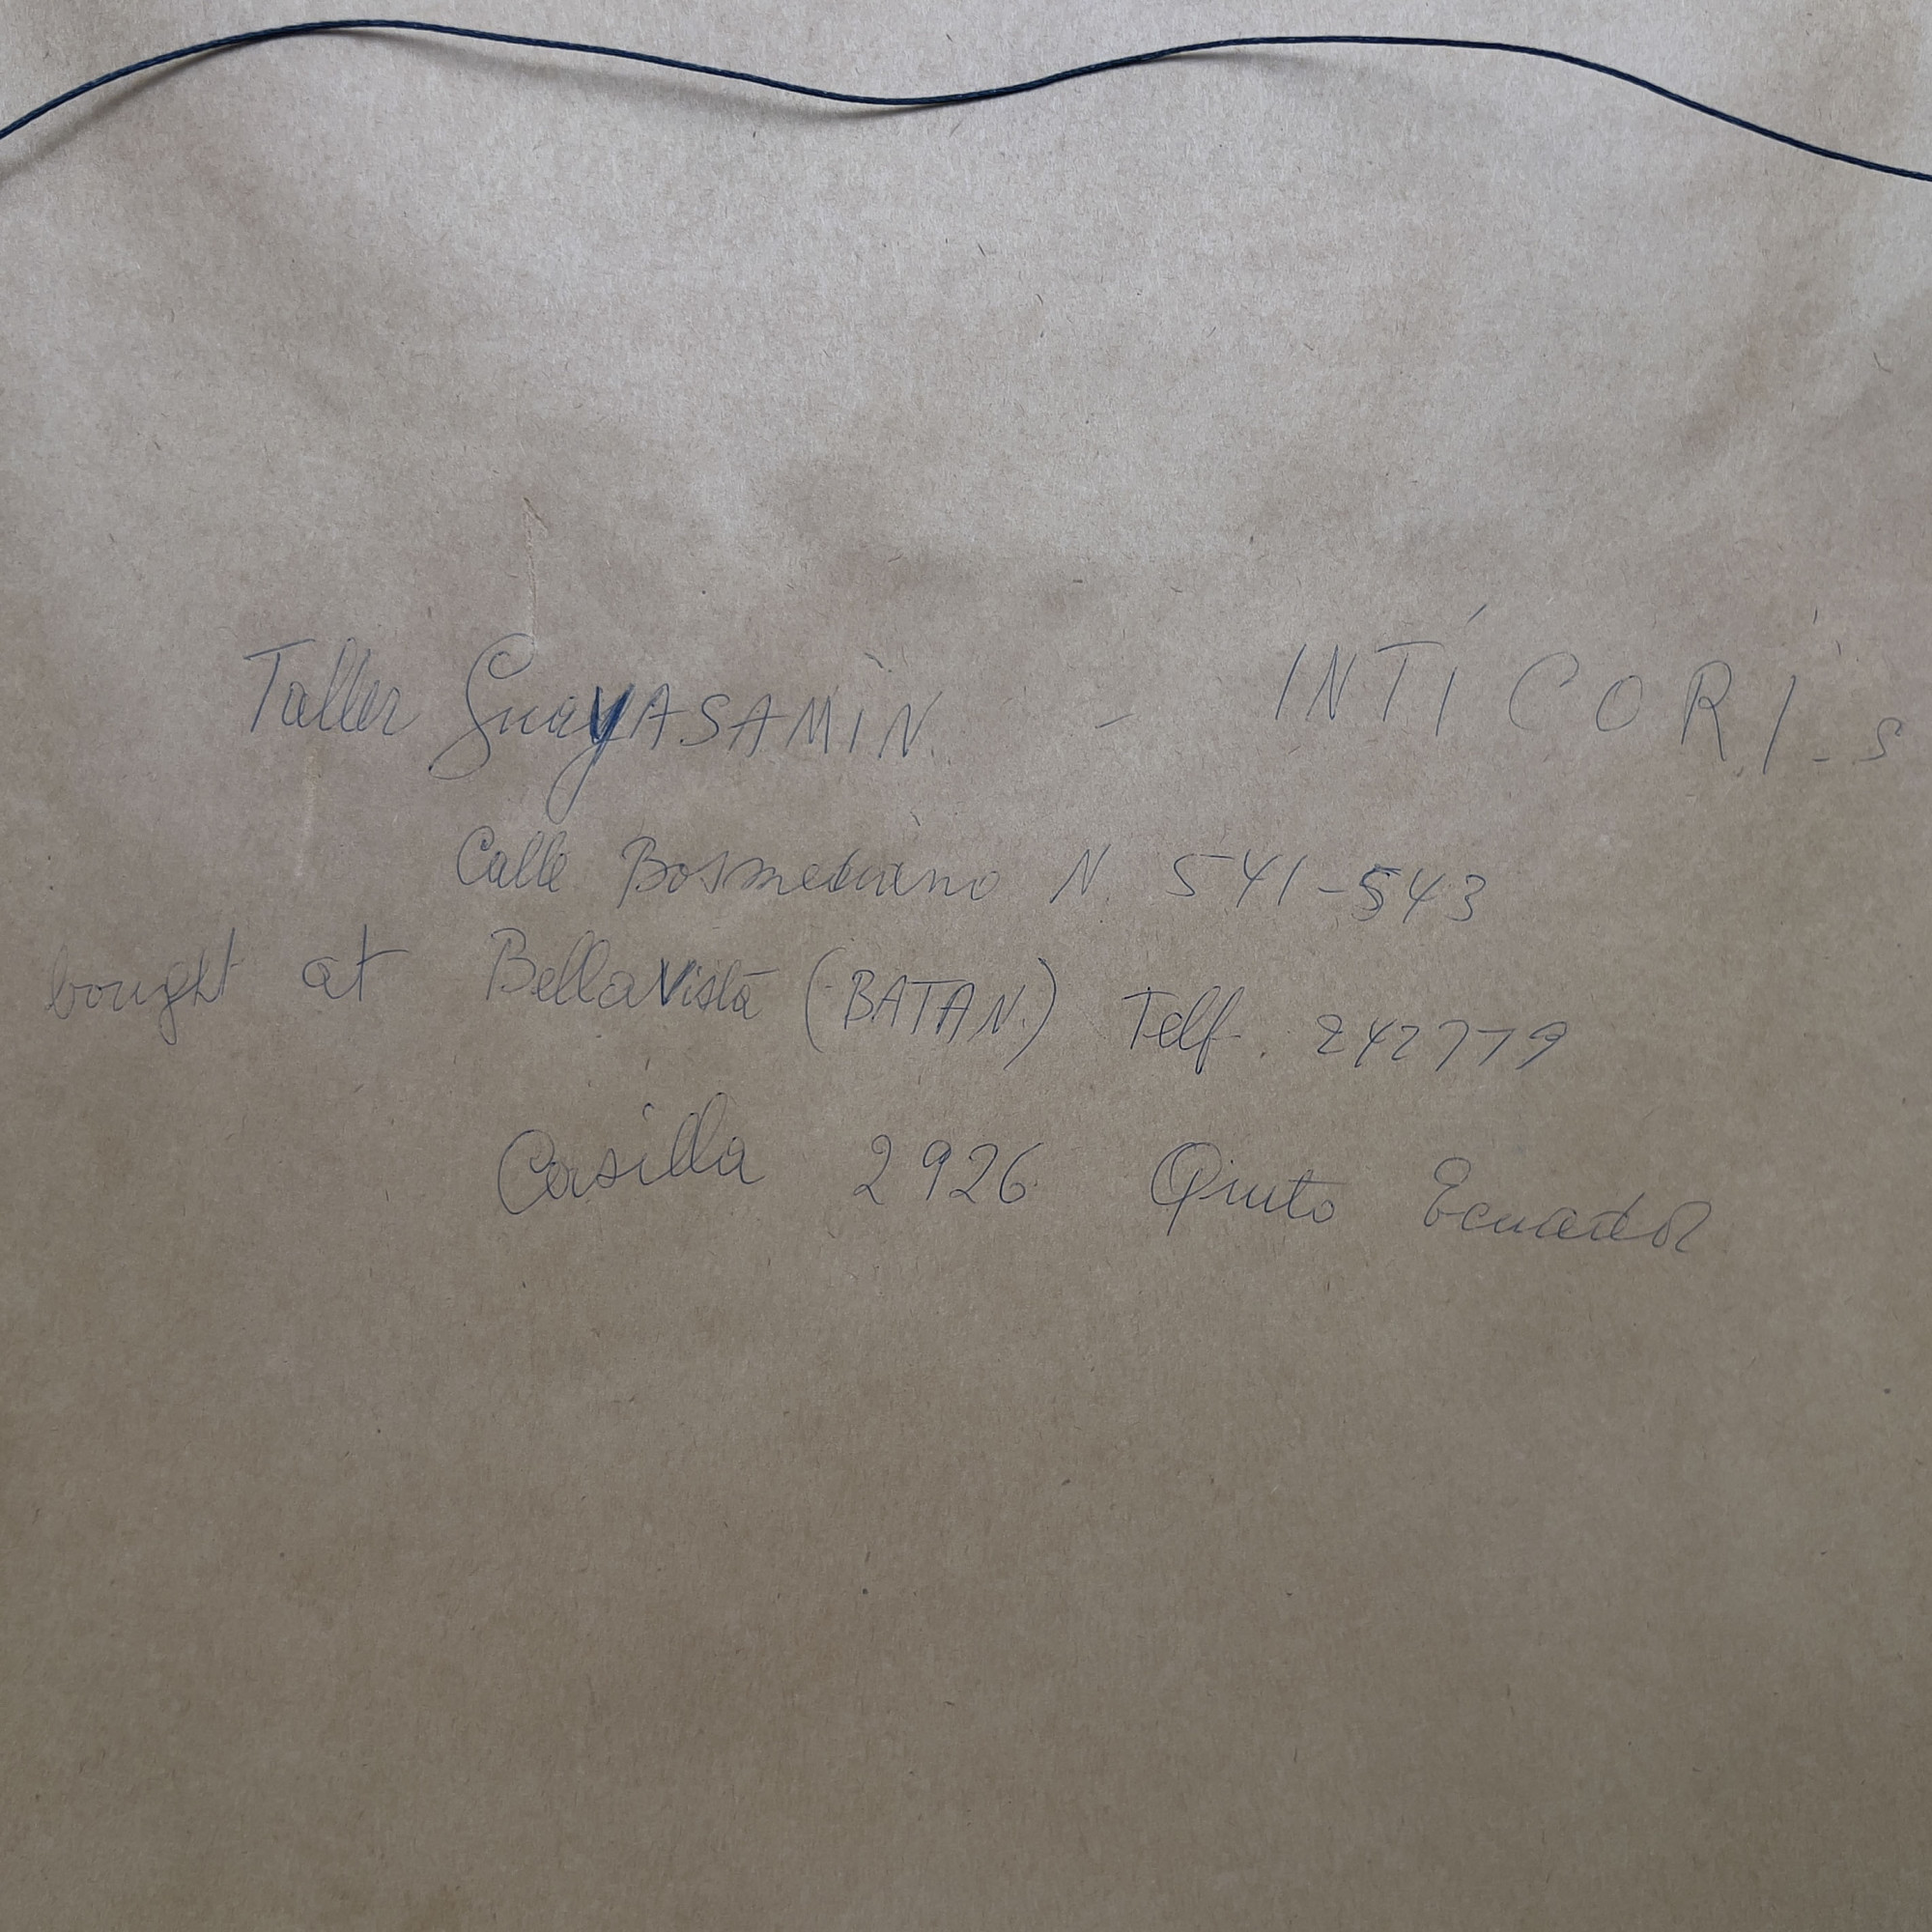 Taller GuayASAMÍN. - INTÍ CORI - S
Calle Bosmediano N. 541-543
bought at BellaVista (BATAN.) Telf. 242779
Casilla 2926 Quito Ecuador